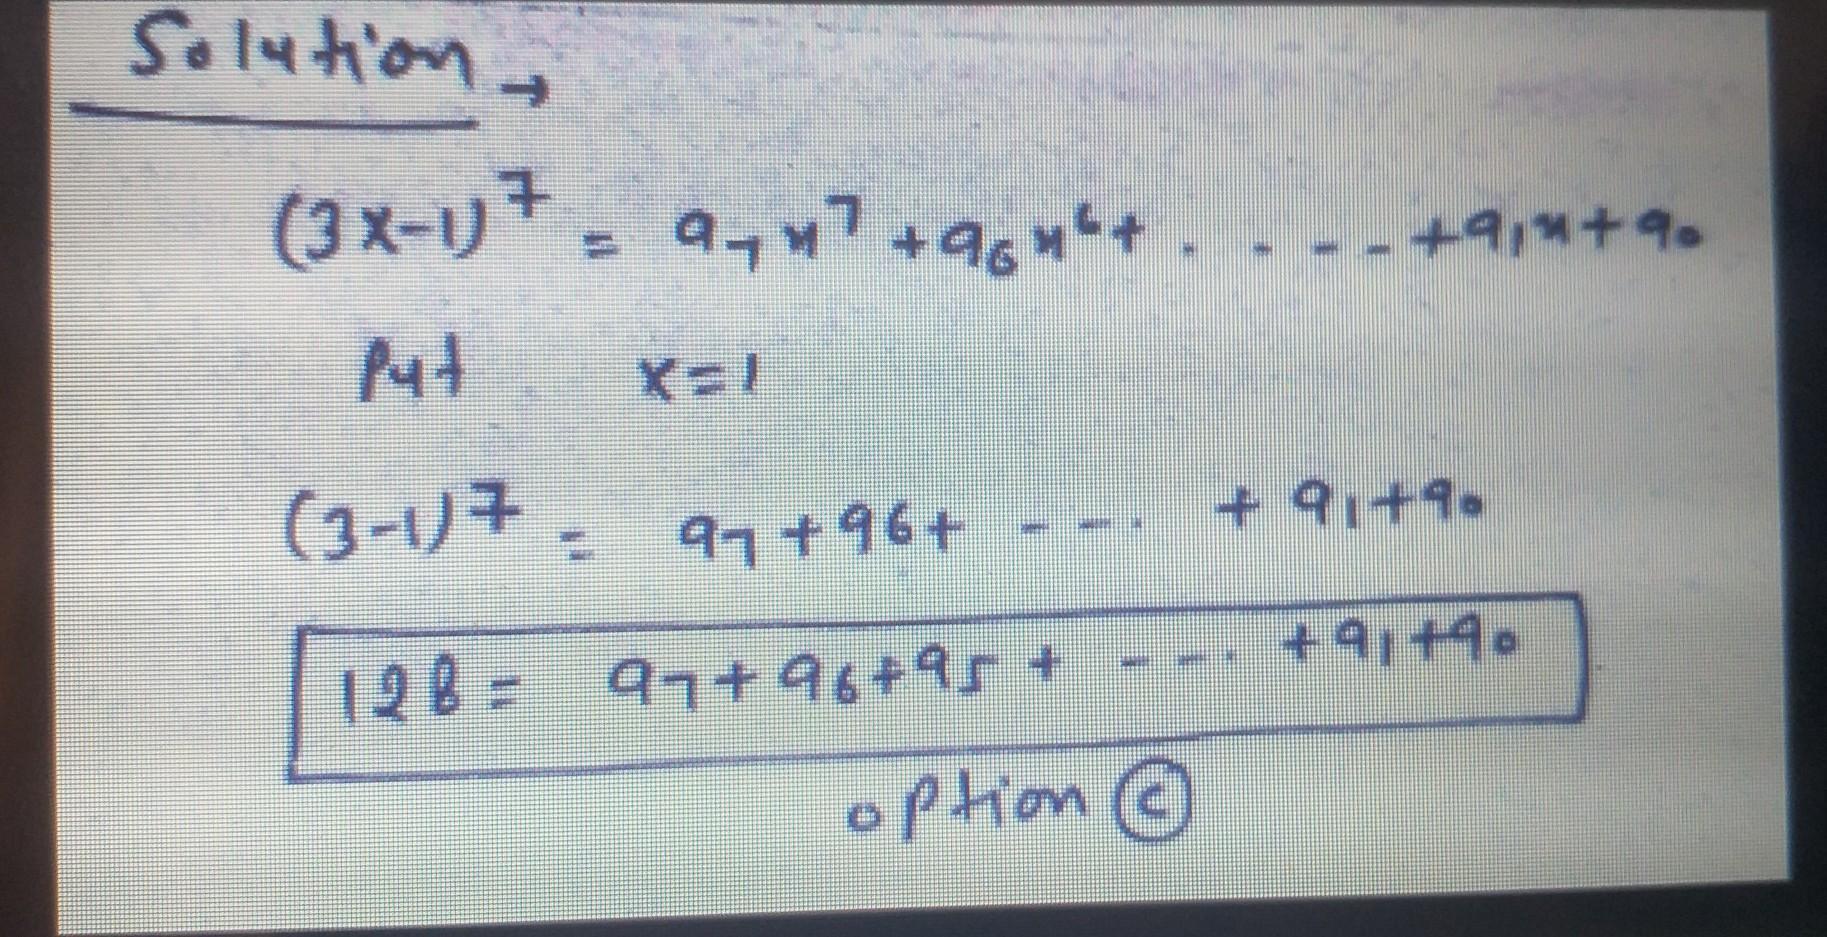 Solution →
(3x-1)⁷ = a₇x⁷ + a₆x⁶ + . - - - + a₁x + a₀
Put x=1
(3-1)⁷ = a₇ + a₆ + - - . + a₁ + a₀
128 = a₇ + a₆ + a₅ + - - . + a₁ + a₀
option (c)